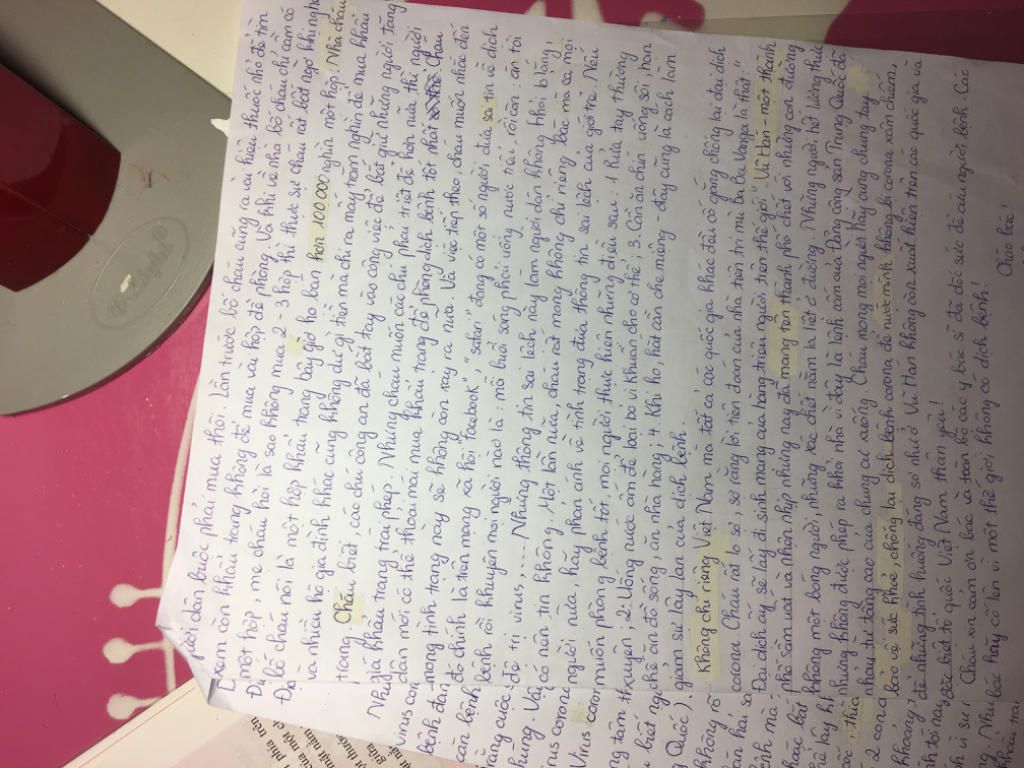 người dân buộc phải mua thôi. Lần trước bố cháu cũng ra vài hiệu thuốc nhỏ để tìm
xem còn khẩu trang không để mua vài hộp để phòng. Và khi về nhà bố cháu chỉ cầm có
một hộp, mẹ cháu hỏi là sao không mua 2 - 3 hộp thì thực sự cháu rất bất ngờ khi nghe
bố cháu nói là một hộp khẩu trang bây giờ họ bán hơn 100.000 nghìn một hộp. Nhà cháu
và nhiều hộ gia đình khác cũng không dư gì tiền mà chi ra mấy trăm nghìn để mua khẩu
trang. Cháu biết, các chú công an đã bắt tay vào công việc để bắt giữ những người tăng
giá khẩu trang trái phép. Nhưng cháu muốn các chú phải triệt để hơn nữa thì người
dân mới có thể thoải mái mua khẩu trang để phòng dịch bệnh tốt nhất. Cháu
mong tình trạng này sẽ không còn xảy ra nữa. Và việc tiếp theo, cháu muốn nhắc đến
đó chính là trên mạng xã hội "facebook", "satan" đang có một số người đưa sai tin về dịch
bệnh rồi khuyên mọi người nào là: mỗi buổi sáng phải uống nước tiểu, rồi còn: ăn tỏi
để trị virus,.... Những thông tin sai lệch này làm người dân không khỏi bỡ ngỡ,
có nên tin không. Một lần nữa, cháu rất mong không chỉ riêng bác mà cả mọi
người nữa, hãy phản ánh về tình trạng đưa thông tin sai lệch của giới trẻ. Nếu
muốn phòng bệnh tốt, mọi người thực hiện những điều sau: 1 rửa tay thường
xuyên; 2: Uống nước ấm để loại bỏ vi khuẩn cho cơ thể; 3. Cần ăn chín uống sôi, hạn
chế ăn đồ sống, ăn nhà hàng; 4. Khi ho, hắt cần che miệng đây cũng là cách làm
giảm sự lây lan của dịch bệnh.
Không chỉ riêng Việt Nam mà tất cả các quốc gia khác đều cố gắng chống lại đại dịch
corona. Cháu rất lo sợ, sợ rằng lời tiên đoán của nhà tiên tri mù Ba Vanga là thật:"
Đại dịch ấy sẽ lấy đi sinh mạng của hàng triệu người trên thế giới." Vũ Hán - một thành
phố sầm uất và nhộn nhịp nhưng nay đã mang tên thành phố chết với những con đường
không một bóng người, những xác chết nằm la liệt ở đường. Những người, hết lương thực
nhưng không được phép ra khỏi nhà vì đây là lệnh cấm của Đảng cộng sản Trung Quốc đã
nhảy tự tầng cao của chung cư xuống. Cháu mong mọi người hãy cùng chung tay
bảo vệ sức khỏe, chống lại dịch bệnh corona để nước mình không bị corona xâm chiếm,
để những tình huống đáng sợ như ở Vũ Hán không còn xuất hiện trên các quốc gia và
đặc biệt tổ quốc Việt Nam thân yêu!
Cháu xin cảm ơn bác và toàn bộ các y bác sĩ đã đốc sức để cứu người bệnh. Các
bác hãy cố lên vì một thế giới, không có dịch bệnh!
Chào bác!
virus con
an bệnh
ang cuộc s
rus corona
Virus coro
u biết ng
Quốc).
không rõ
2 corona